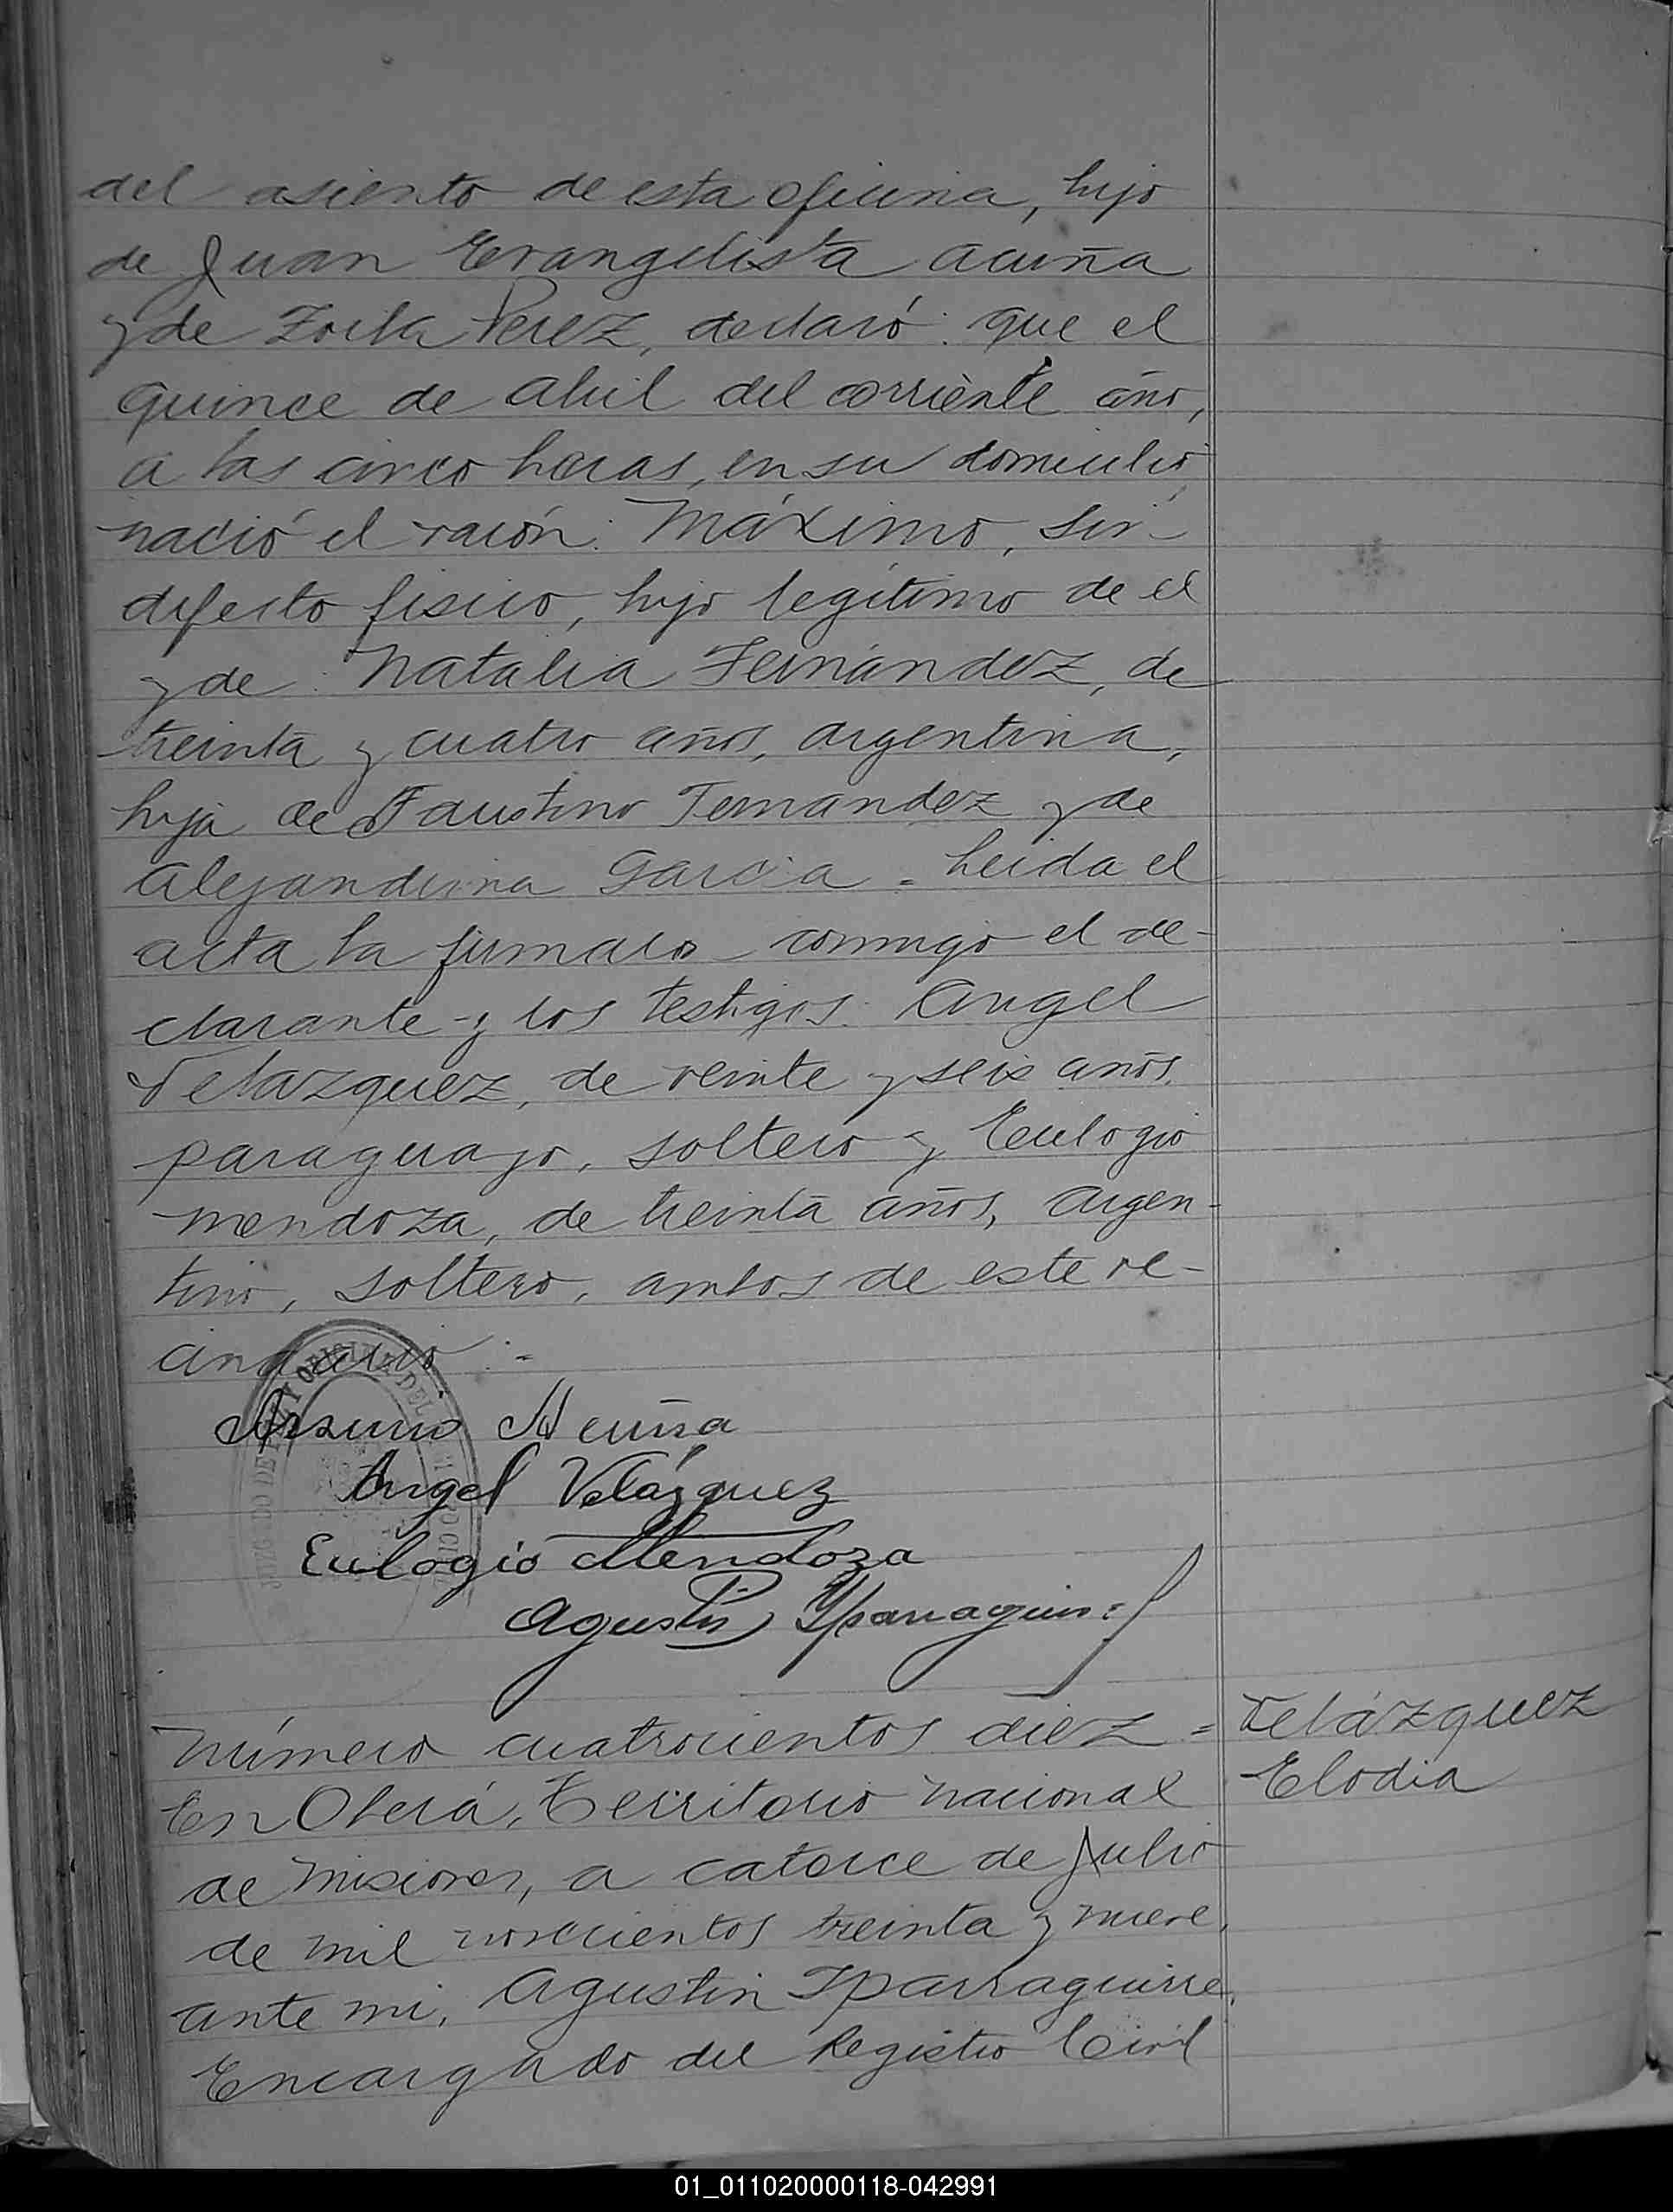 del asiento de esta oficina, hijo
de Juan Evangelista Acuña
y de Zoila Perez, declaró: que el
quince de abril del corriente año,
a las cinco horas, en su domicilio,
nació el varón: Máximo, sin
defecto fisico, hijo legítimo de el
y de: Natalia Fernández, de
treinta y cuatro años, argentina,
hija de Faustino Fernandez y de
Alejandrina Garcia = Leida el
acta la firmaron conmigo el de-
clarante y los testigos: Angel
Velazquez, de veinte y seis años,
paraguayo, soltero y Eulogio
Mendoza, de treinta años, argen-
tino, soltero, ambos de este ve-
cindario :-
Acuña
Angel Velázquez
Eulogio Mendoza
Agustín Yparraguirre
Número cuatrocientos diez =
Velázquez
Elodia
En Oberá, Territorio Nacional
de Misiones, a catorce de Julio
de mil novecientos treinta y nueve,
ante mi, Agustin Iparraguirre,
Encargado del Registro Civil
01_011020000118-042991